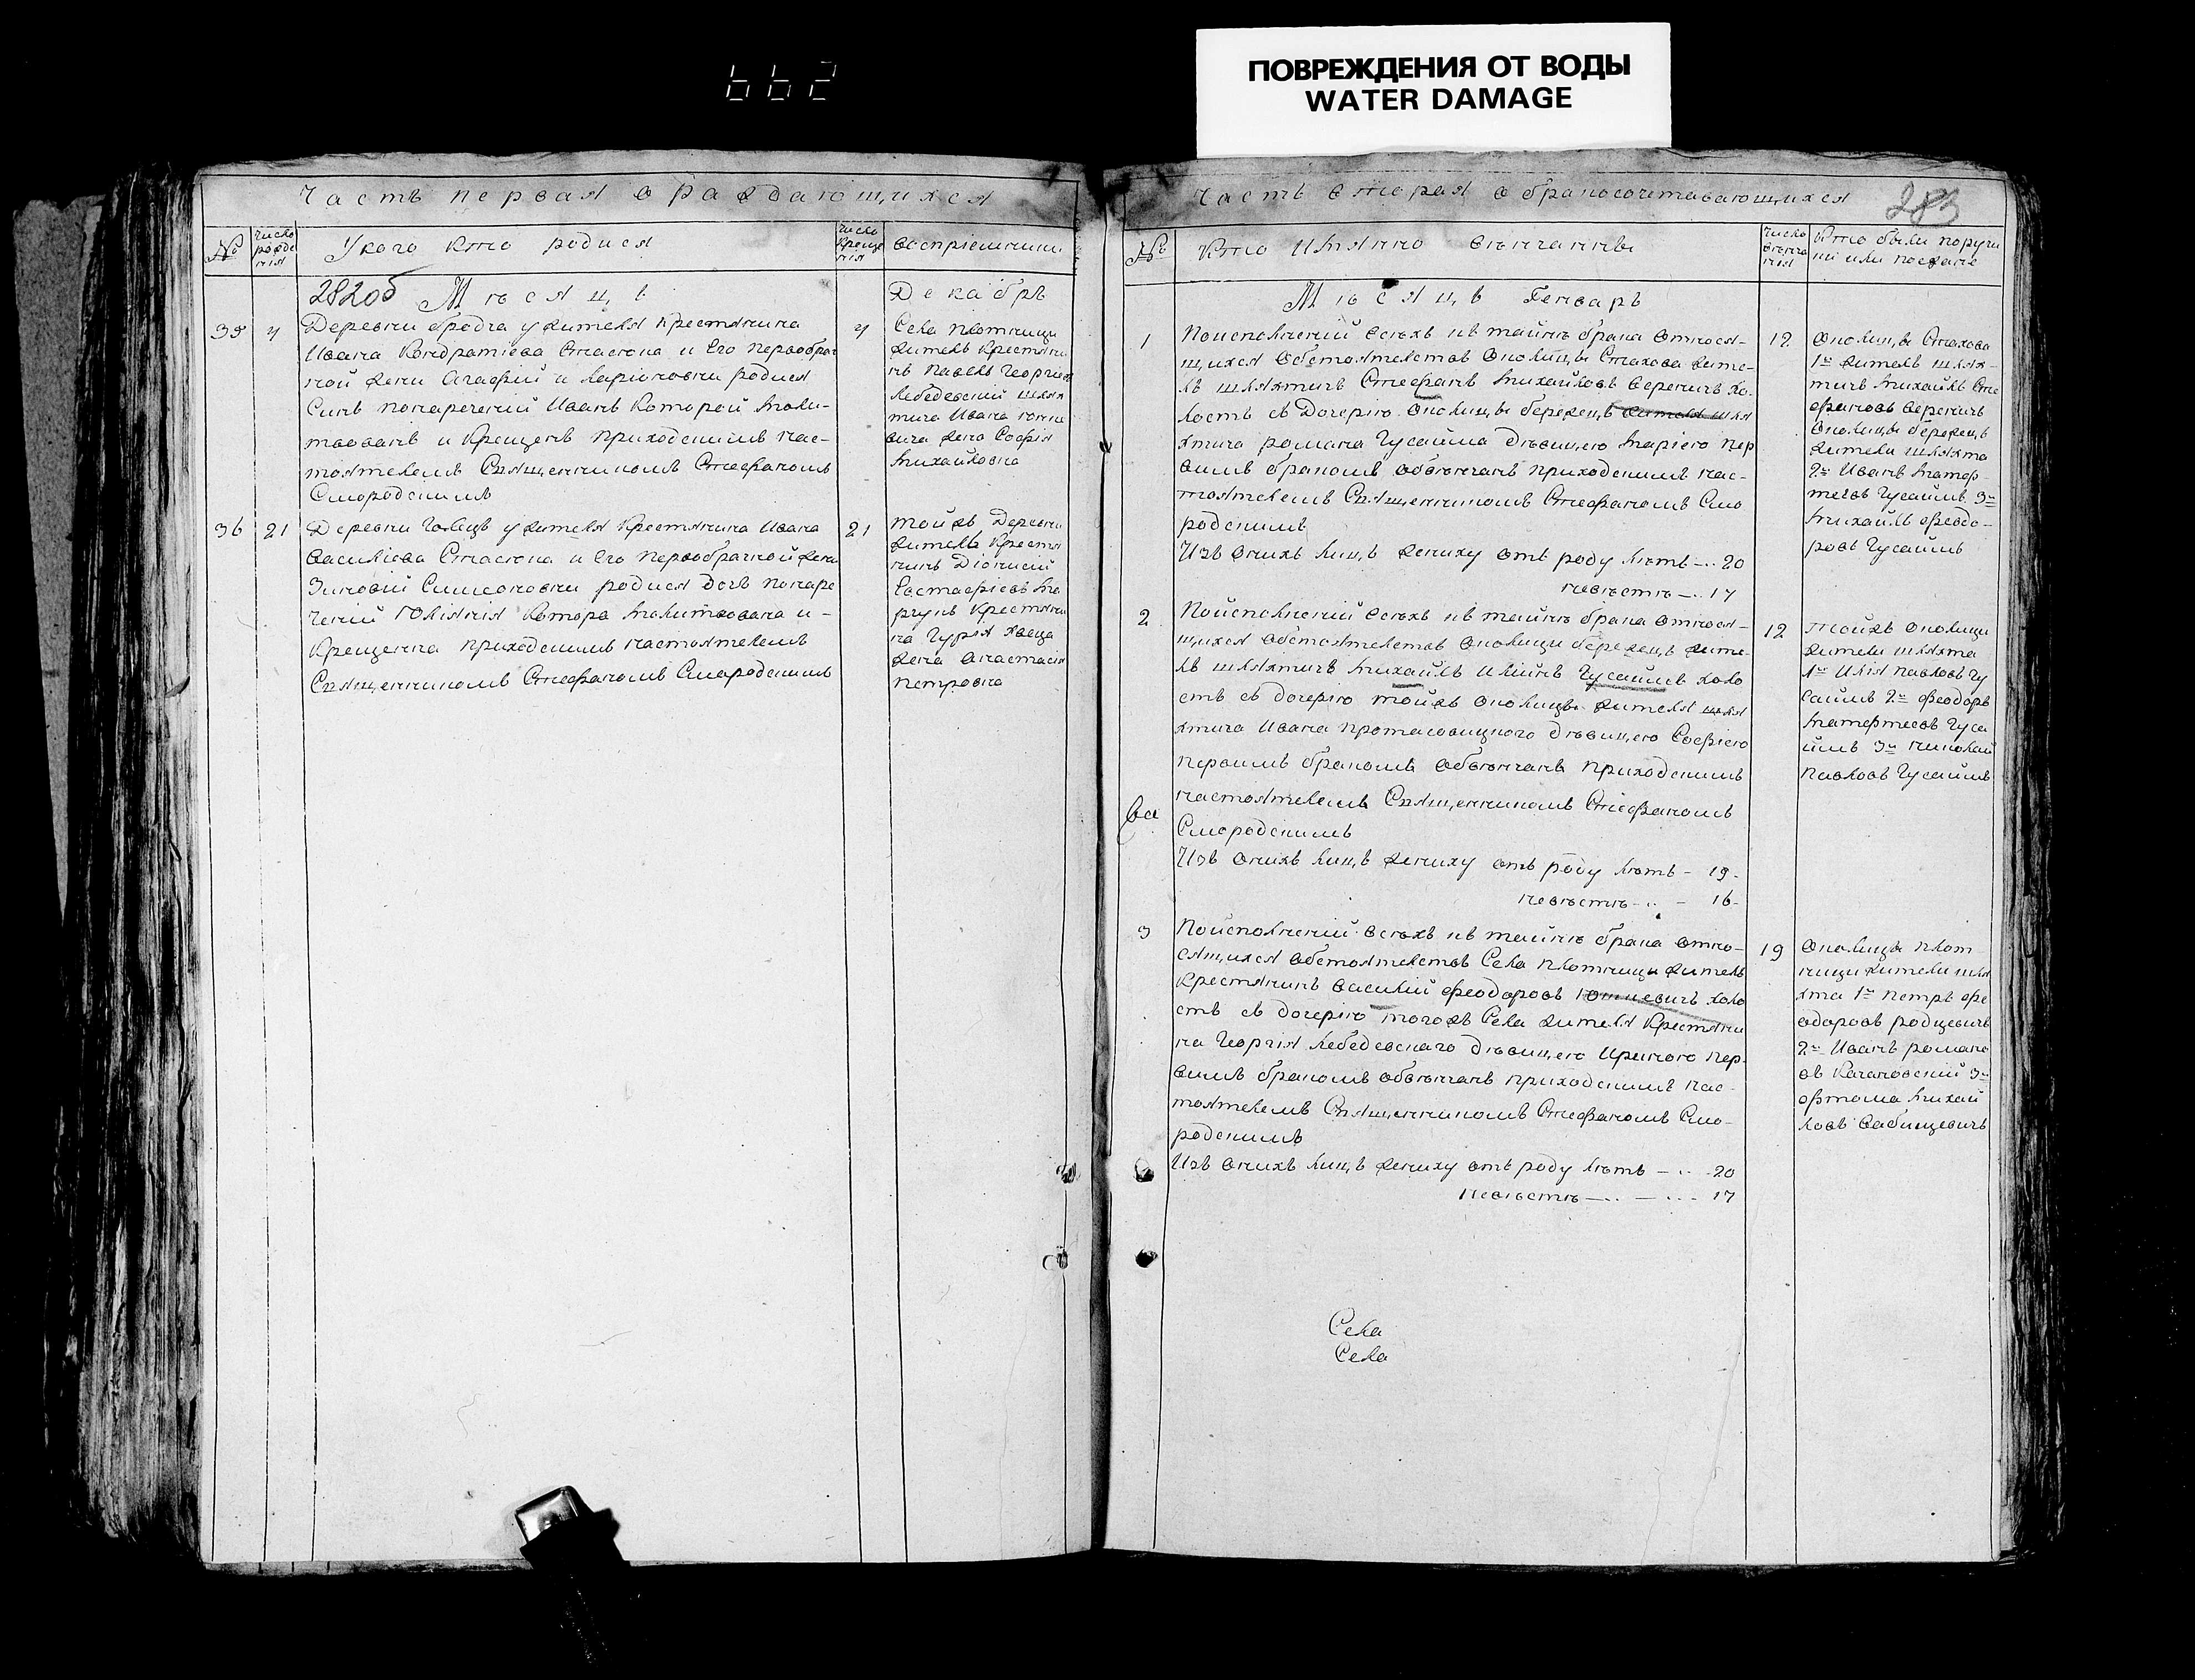 662
ПОВРЕЖДЕНИЯ ОТ ВОДЫ
WATER DAMAGE
Часть первая о раждающихся
№
число рожде нія
У кого кто родися
число креще нія
воспріемники
282об
Мѣсяцъ
Декабрь
35
4
Деревни бродча у жителя крестянина
Ивана Кондратіева Стасюка и Его первобрач
ной жени Агафіи и Ларіоновни родися
Синъ нонареченій Иванъ Которой моли-
твованъ и Крещенъ приходскимъ нас-
тоятелемъ Священникомъ Стефаномъ
Смородскимъ
4
Села Плотници
житель Крестяни
нъ Павелъ Георгіев
Лебедевскій шлях
тича Ивана
вича жена Софія
Михайловна
36
21
Деревни у жителя Крестянина Ивана
Василіева Стасюка и Его первобрачной жени
Зиновіи Симеоновни родися Дочь нонаре
ченій Юліянія Котора молитвована и -
Крещенна приходскимъ настоятелемъ
Священникомъ Стефаномъ Смародскимъ
21
тойжъ Деревни
житель Крестя
нинъ Діонисій
Евстафіевъ Ма
рчукъ Крестяни
на Гурія
жена Анастасія
Петровна
Часть вторая о бракосочетавающихся
283
№
Кто Имянно вѣнчанни
число вѣнча нія
Кто были поручи
ки или поезжане
Мѣсяцъ Генварь
1
Поисполненій всѣхъ къ тайнѣ брака относя-
щихся обстоятелствъ околицы Стахова жите-
ль шляхтичъ Стефанъ Михайловъ Вереничъ хо-
лостъ съ Дочерію околицы бережецъ жителя шля
хтича романа Гусайма дѣвицею Маріею пер
вимъ бракомъ обвѣнчанъ приходскимъ нас-
тоятелемъ Священникомъ Стефаномъ Смо
родскимъ
Изъ оныхъ лицъ жениху отъ роду лѣтъ - .. 20
невѣстѣ - .. 17
12
околицы Стахова
1й житель шлях-
тичъ Михайлъ Сте
фановъ Вереничъ
околицы бережецъ
жители шляхта
2й Иванъ Матеф-
теевъ Гусаимъ 3й
Михайлъ Феодо-
ровъ Гусаимъ
2
Поисполненій всѣхъ къ тайнѣ брака относя-
щихся обстоятелствъ околици бережецъ жите-
ль шляхтичъ Михайлъ Илиинъ Гусаимъ холо
стъ съ дочерію тойжъ околицы жителя шля
хтича Ивана Протасовицкого дѣвицею Софіею
первимъ бракомъ обвѣнчанъ приходскимъ
настоятелемъ Священникомъ Стефаномъ
Смородскимъ
Изъ оныхъ лицъ жениху отъ роду лѣтъ - 19-
невѣстѣ - .. - 16-
12
тойжъ околици
жители шляхта
1й Илія Павловъ Гу
саимъ 2й Феодоръ
Матефтеевъ Гуса
имъ 3й николай
Павловъ Гусаимъ
3
Поисполненій всѣхъ къ тайнѣ брака отно-
сящихся обстоятелствъ Села плотници житель
Крестянинъ василій Феодоровъ холо
стъ съ дочерію тогожъ Села жителя Крестяни
на Георгія Лебедевскаго дѣвицею Ириною пер-
вимъ бракомъ обвѣнчанъ приходскимъ нас-
тоятелемъ Священникомъ Стефаномъ Смо-
родскимъ
Изъ оныхъ лицъ жениху отъ роду лѣтъ - .. 20
невѣстѣ - .. - .. 17
19
Околици Плот
ници жители шля
хта 1й Петръ Фе
одоровъ родцевичъ
2й Иванъ романо
въ Качановскій 3й
Фтома Михай
ловъ Сабицевичъ
Села
Села